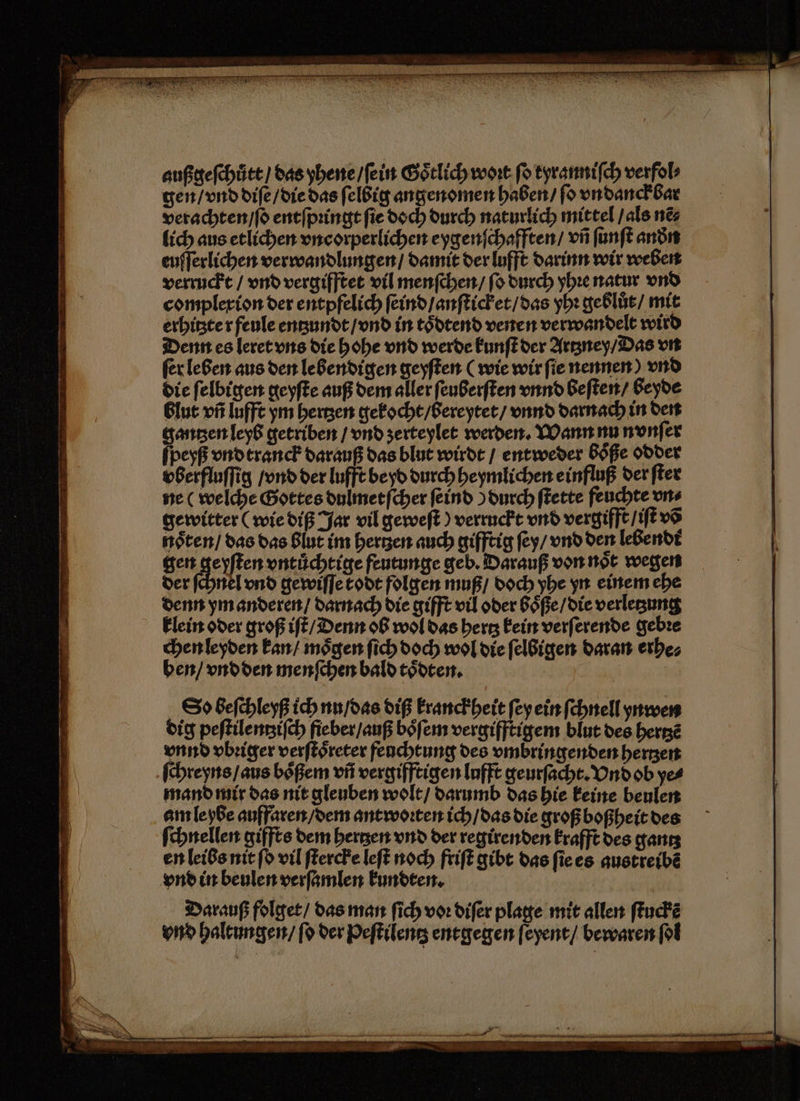 außgeſchuͤtt / das yhene /ſein Goͤtlich woꝛt ſo tyranniſch verfol⸗
gen /vnd diſe /die das ſelbig angenomen haben / ſo vndanckbar
verachten /ſo entſpꝛingt ſie doch durch naturlich mittel / als nē⸗
lich aus etlichen vncorperlichen eygenſchafften / vñ ſunſt andn̄
euſſerlichen verwandlungen / damit der lufft darinn wir weben
verruckt / vnd vergifftet vil menſchen / ſo durch yhꝛe natur vnd
complexion der entpfelich ſeind /anſticket /das yhꝛ gebluͤt / mit
erhitzter feule entzundt /vnd in toͤdtend venen verwandelt wird
Denn es leret vns die hohe vnd werde kunſt der Artzney /Das vn
ſer leben aus den lebendigen geyſten ( wie wir ſie nennen ) vnd
die ſelbigen geyſte auß dem aller ſeuberſten vnnd beſten / beyde
blut vñ lufft ym hertzen gekocht /bereytet / vnnd darnach in den
gantzen leyb getriben / vnd zerteylet werden. Wann nu nvnſer
ſpeyß vnd tranck darauß das blut wirdt / entweder boͤße odder
vberfluſſig /vnd der lufft beyd durch heymlichen einfluß der ſter
ne ( welche Gottes dulmetſcher ſeind ) durch ſtette feuchte vn⸗
gewitter ( wie diß Jar vil geweſt ) verruckt vnd vergifft / iſt võ
noͤten / das das blut im hertzen auch gifftig ſey / vnd den lebendī
gen geyſten vntuͤchtige feutunge geb. Darauß von noͤt wegen
der ſchnel vnd gewiſſe todt folgen muß / doch yhe yn einem ehe
denn ym anderen / darnach die gifft vil oder boͤße /die verletzung
klein oder groß iſt /Denn ob wol das hertz kein verſerende gebꝛe
chen leyden kan / moͤgen ſich doch wol die ſelbigen daran erhe⸗
ben / vnd den menſchen bald toͤdten.
So beſchleyß ich nu /das diß kranckheit ſey ein ſchnell ynwen
dig peſtilentziſch fieber /auß boͤſem vergifftigem blut des hertzē
vnnd vbꝛiger verſtoͤreter feuchtung des vmbringenden hertzen
ſchreyns /aus boͤßem vñ vergifftigen lufft geurſacht. Vnd ob ye⸗
mand mir das nit gleuben wolt / darumb das hie keine beulen
am leybe auffaren /dem antwoꝛten ich /das die groß boßheit des
ſchnellen giffts dem hertzen vnd der regirenden krafft des gantz
en leibs nit ſo vil ſtercke leſt noch friſt gibt das ſie es austreibē
vnd in beulen verſamlen kundten.
Darauß folget / das man ſich voꝛ diſer plage mit allen ſtuckē
vnd haltungen / ſo der Peſtilentz entgegen ſeyent / bewaren ſol